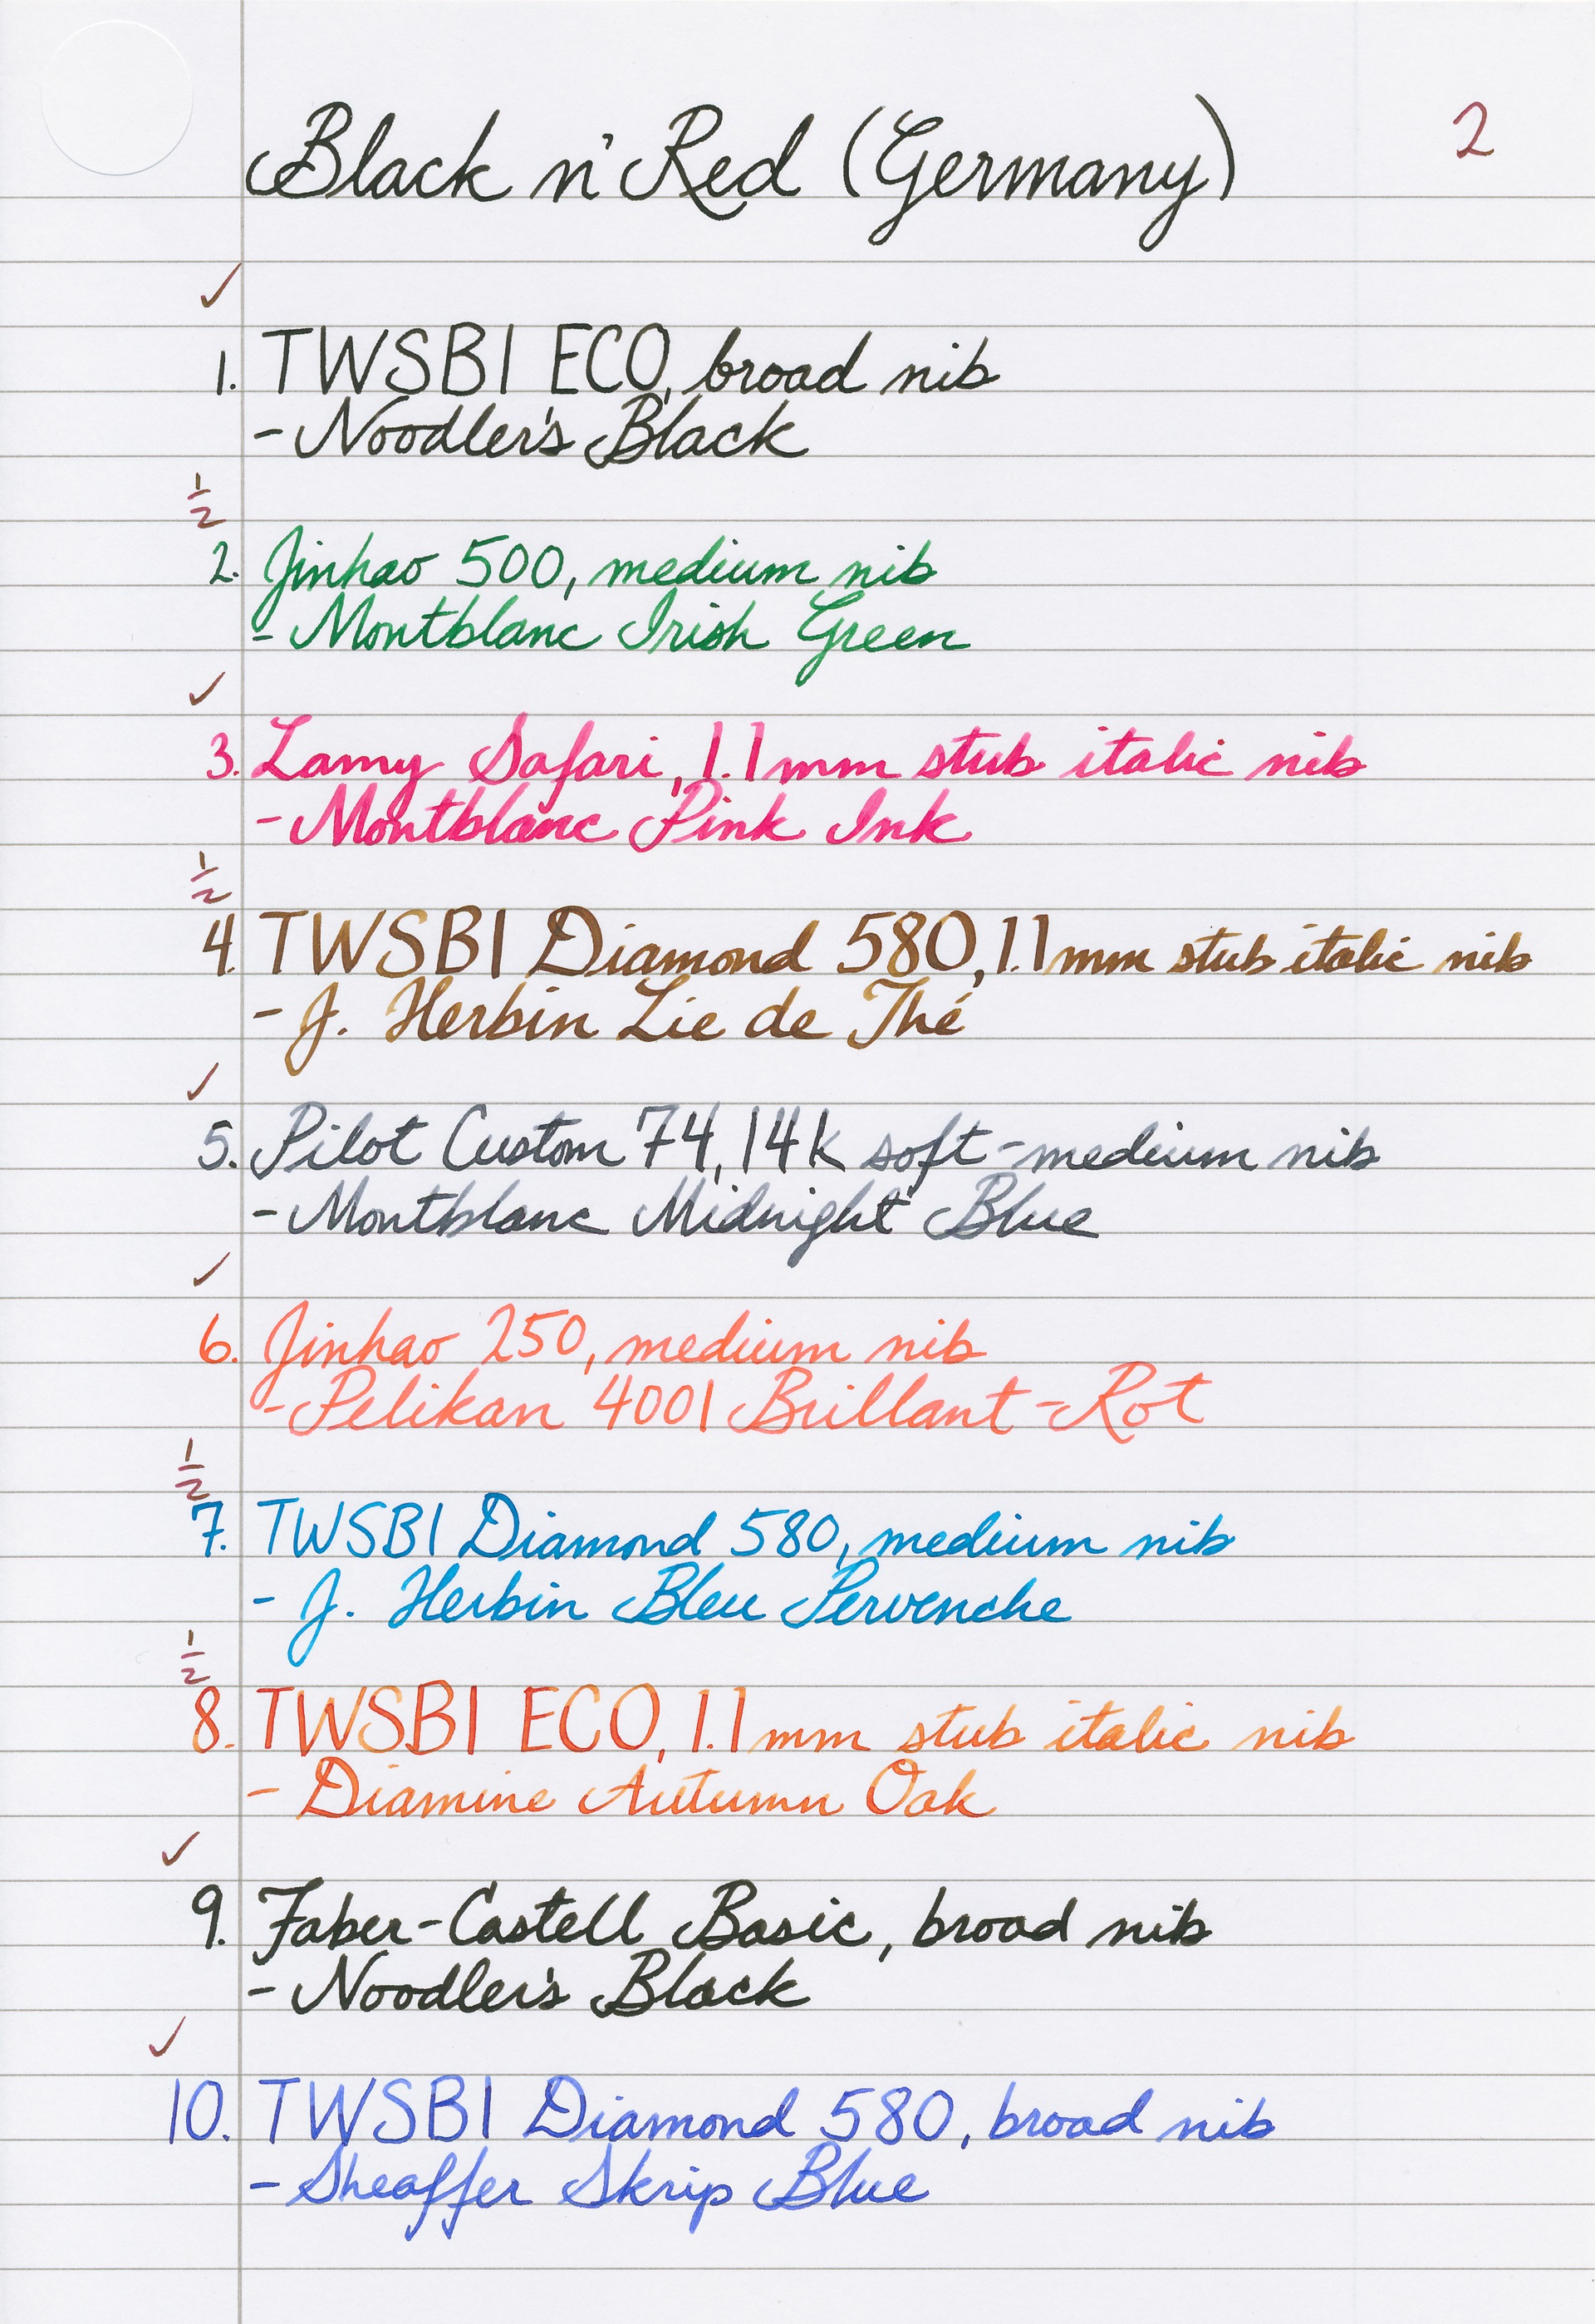 Black n' Red (Germany) 2
✓
1. TWSBI ECO, broad nib
- Noodler's Black
1/2
2. Jinhao 500, medium nib
- Montblanc Irish Green
✓
3. Lamy Safari, 1.1mm stub italic nib
- Montblanc Pink Ink
1/2
4. TWSBI Diamond 580, 1.1mm stub italic nib
- J. Herbin Lie de Thé
✓
5. Pilot Custom 74, 14k soft-medium nib
- Montblanc Midnight Blue
✓
6. Jinhao 250, medium nib
- Pelikan 4001 Brillant-Rot
1/2
7. TWSBI Diamond 580, medium nib
- J. Herbin Bleu Pervenche
1/2
8. TWSBI ECO, 1.1mm stub italic nib
- Diamine Autumn Oak
✓
9. Faber-Castell Basic, broad nib
- Noodler's Black
✓
10. TWSBI Diamond 580, broad nib
- Sheaffer Skrip Blue